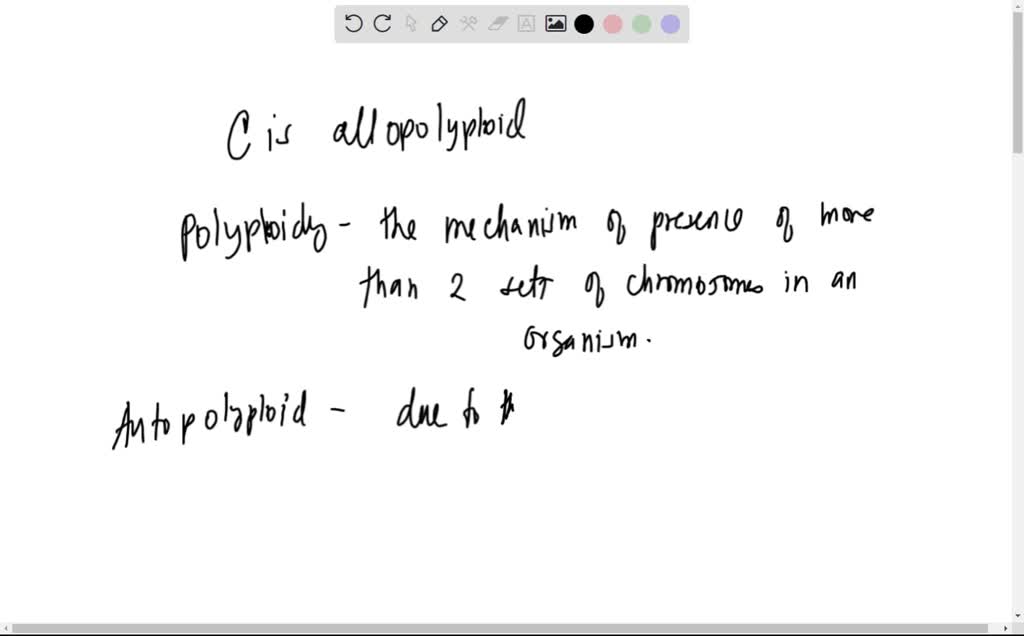 C is allopolyploid
Polyploidy - the mechanism of presence of more
than 2 sets of chromosomes in an
organism.
Autopolyploid - due to